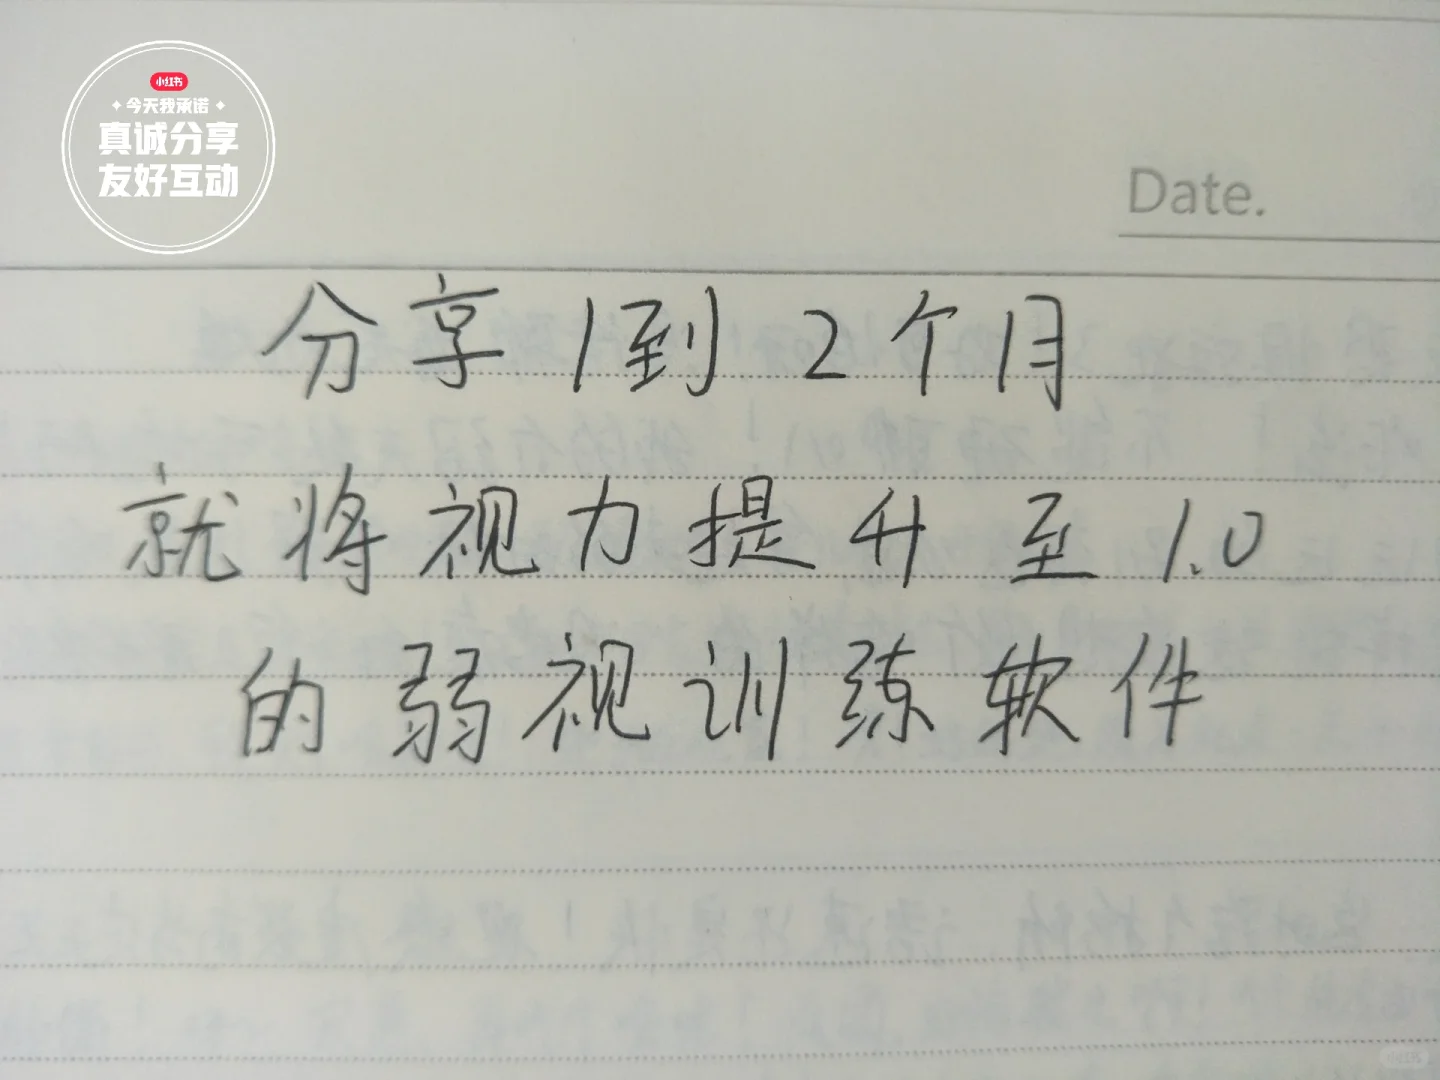 小红书
今天我承诺
真诚分享
友好互动
Date.
分享1到2个月
就将视力提升至1.0
的弱视训练软件
小红书